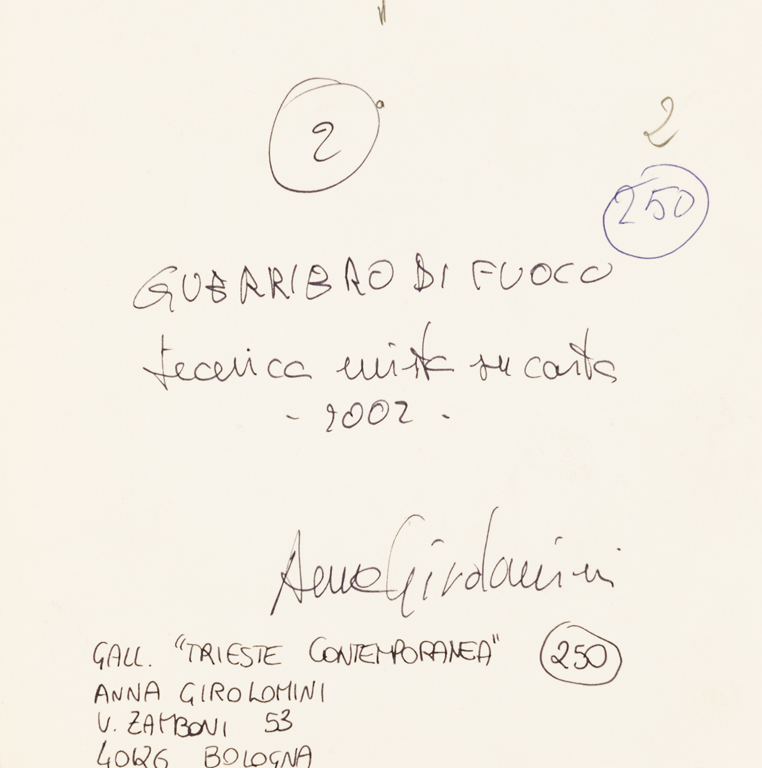 2
2
250
GUERRIERO DI FUOCO
tecnica mista su carta
- 2002 -
Anna Girolomini
GALL. "TRIESTE CONTEMPORANEA" 250
ANNA GIROLOMINI
V. ZAMBONI 53
40126 BOLOGNA